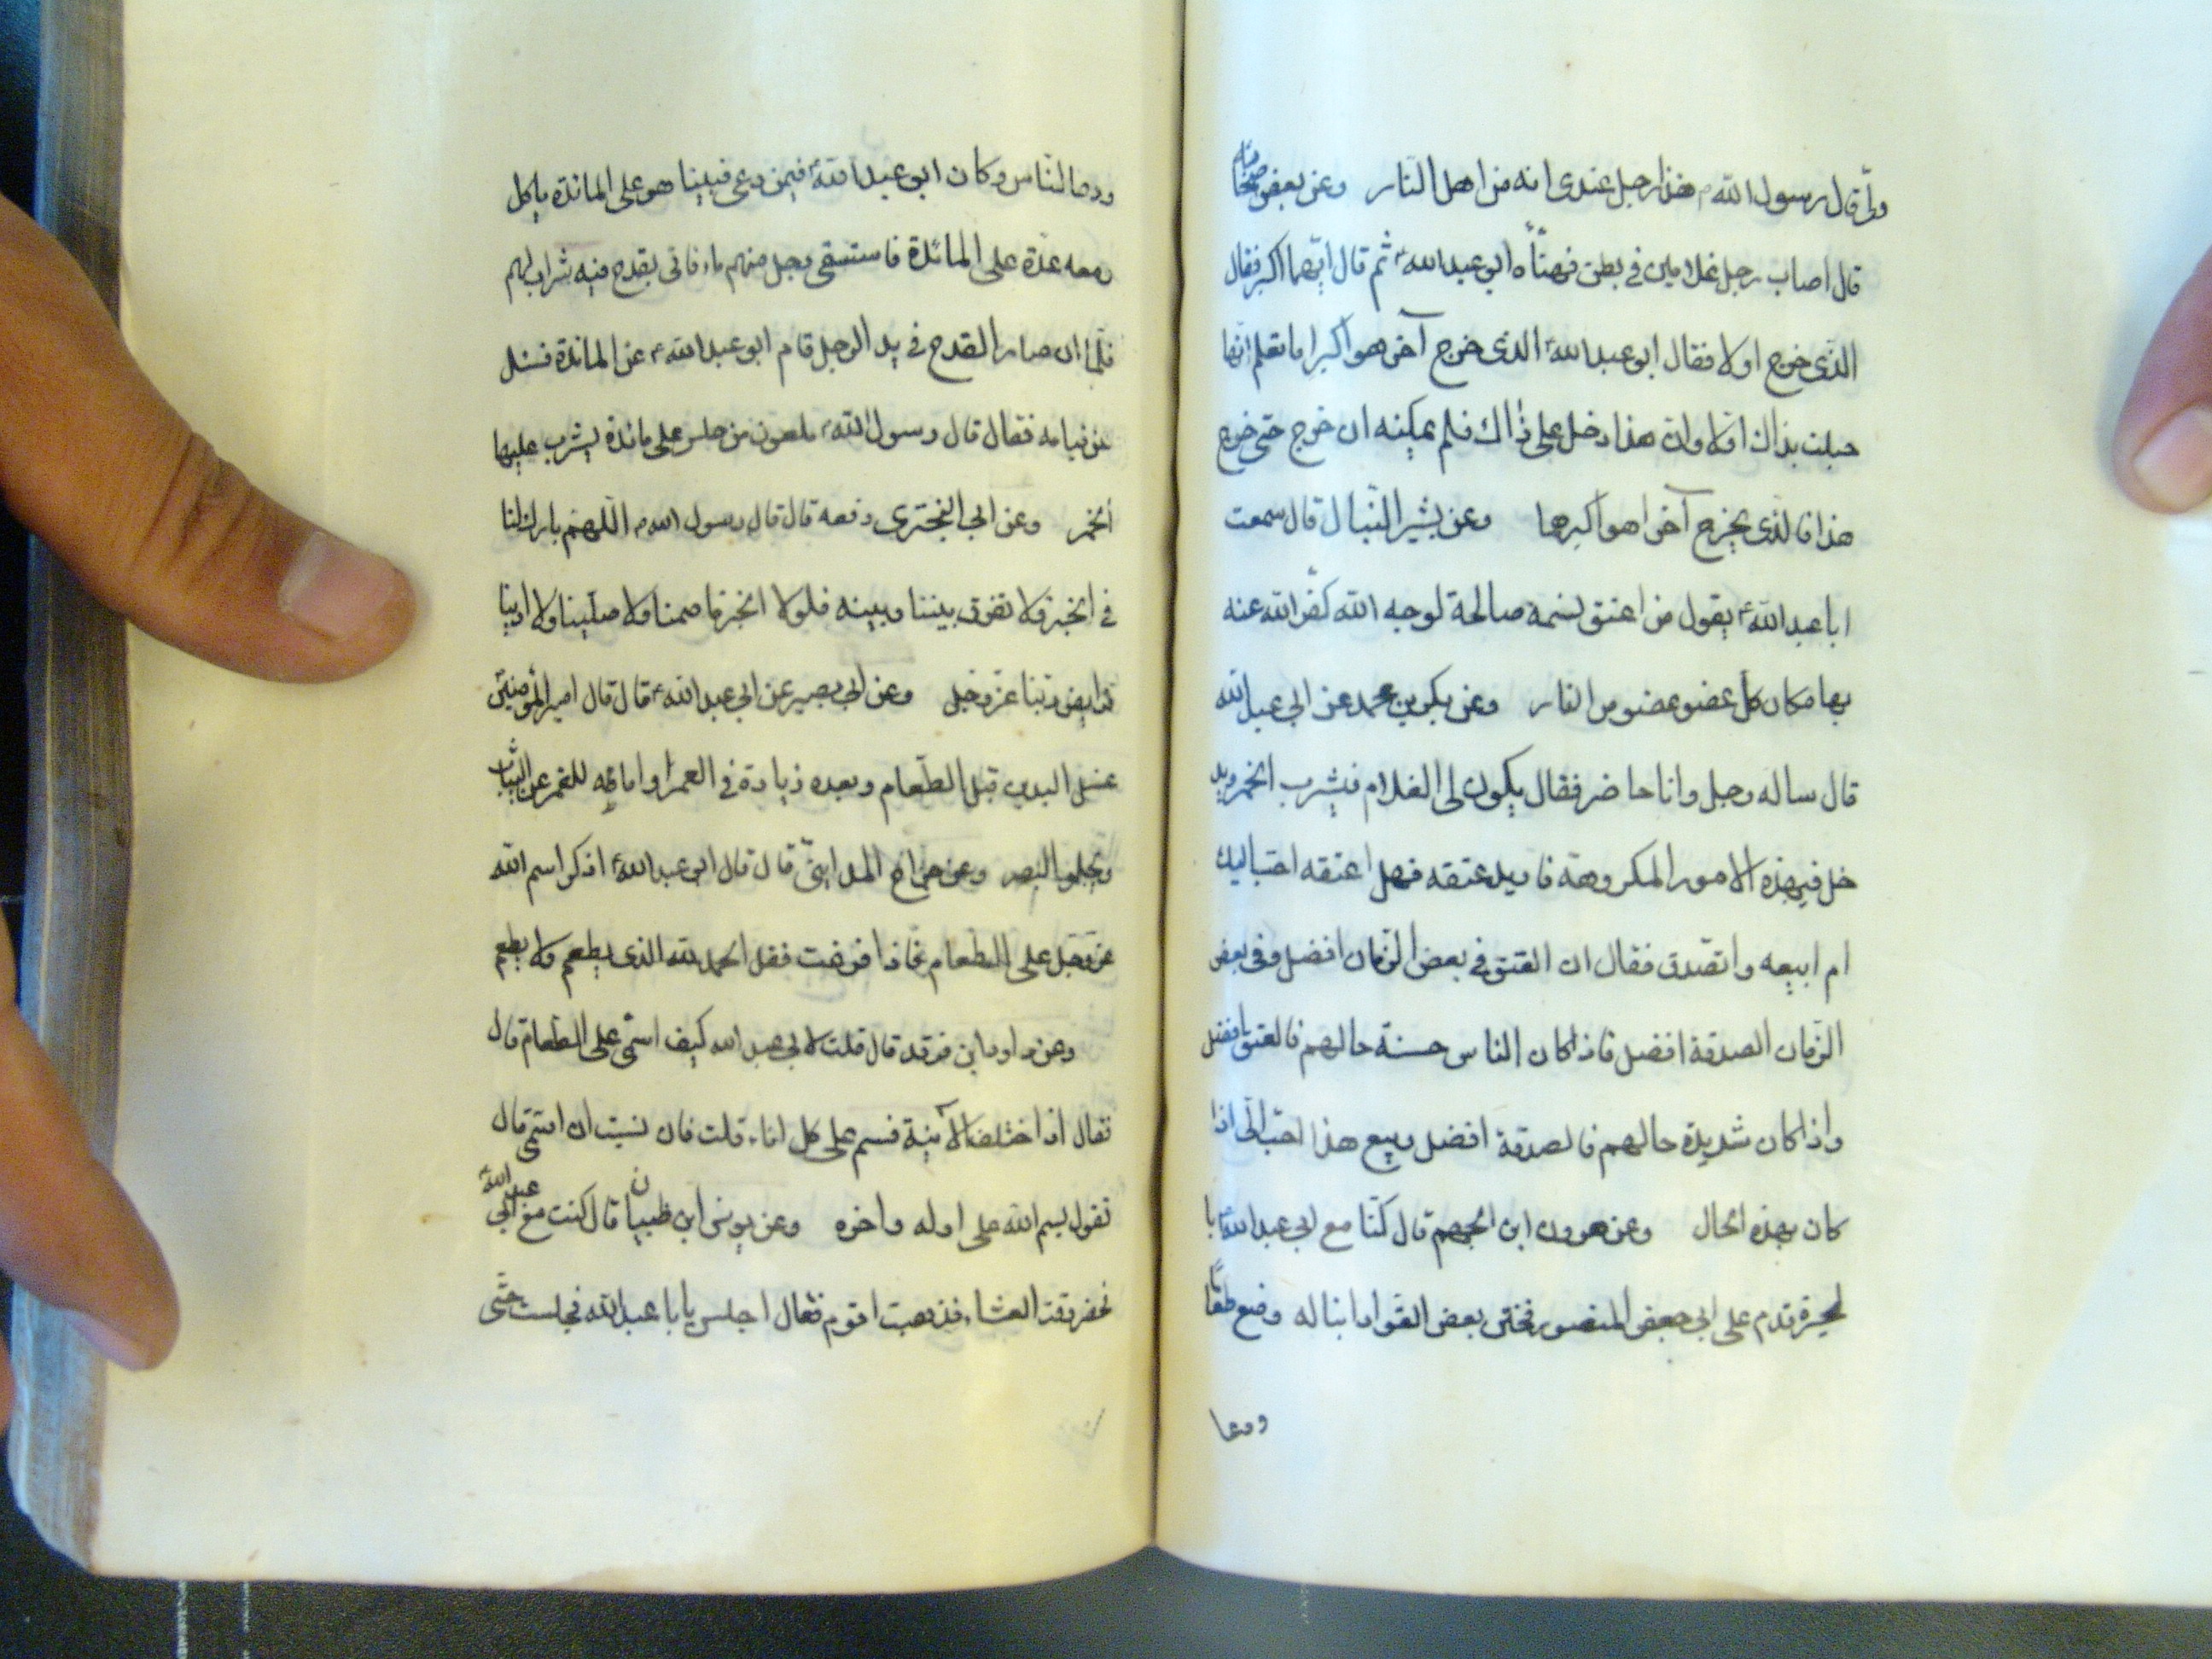 ولّى قال رسول الله ص هذا رجل عندى انه من اهل النار وعن بعض اصحابنا
قال اصاب رجل غلامين فى بطن فهنأه ابو عبد الله ع ثم قال ايهما اكبر فقال
الذى خرج اولا فقال ابو عبد الله ع الذى خرج آخر هو اكبر اما تعلم انها
حبلت بذاك اولا وان هذا دخل على ذاك فلم يمكنه ان خرج حتى خرج
هذا فالذى يخرج آخرا هو اكبرهما وعن بشير النبال قال سمعت
ابا عبد الله ع يقول من اعتق نسمة صالحة لوجه الله كفّر الله عنه
بها مكان كل عضو عضو من النار وعن بكر بن محمد عن ابى عبد الله
قال ساله رجل وانا حاضر فقال يكون لى الغلام فيشرب الخمر ويد
خل فى هذه الامور المكروهة فاريد عتقه فهل اعتقه احب اليك
ام ابيعه واتصدق فقال ان العتق فى بعض الزمان افضل وفى بعض
الزمان الصدقة افضل فاذا كان الناس حسنة حالهم فالعتق افضل
واذا كان شديدة حالهم فالصدقة افضل وبيع هذا احب الىّ اذا
كان بهذه الحال وعن هرون ابن الجهم قال كنّا مع ابى عبد الله ع با
لحيرة قدم على ابى جعفر المنصور فختن بعض القواد ابنا له وصنع طعاما
ودعا
ودعا الناس وكان ابو عبد الله ع فيمن دعى فبينا هو على المائدة ياكل
ومعه عدّة على المائدة فاستسقى رجل منهم ماء فاتى بقدح فيه شراب لهم
فلما ان صار القدح فى يد الرجل قام ابو عبد الله ع عن المائدة فسئل
عن قيامه فقال قال رسول الله ص ملعون من جلس على مائدة يشرب عليها
الخمر وعن ابى البخترى رفعه قال قال رسول الله ص اللهم بارك لنا
فى الخبز ولا تفرق بيننا وبينه فلولا الخبز ما صمنا ولا صلّينا ولا ادينا
فرايض ربنا عز وجل وعن ابى بصير عن ابى عبد الله ع قال قال امير المؤمنين
غسل اليدين قبل الطعام وبعده زيادة فى العمر واماطة للغمر عن الثياب
ويجلو البصر وعن جراح المداينى قال قال ابو عبد الله ع اذكر اسم الله
عز وجل على الطعام فاذا فرغت فقل الحمد لله الذى يطعم ولا يطعم
وعن داود ابن فرقد قال قلت لابى عبد الله كيف اسمّى على الطعام قال
فقال اذا اختلف الآنية فسم على كل اناء قلت فان نسيت ان اسمّى قال
تقول بسم الله على اوله واخره وعن يونس ابن ظبيان قال كنت مع ابى عبد الله ع
فحضر وقت العشاء فذهبت اقوم فقال اجلس يا با عبد الله فجلست حتى